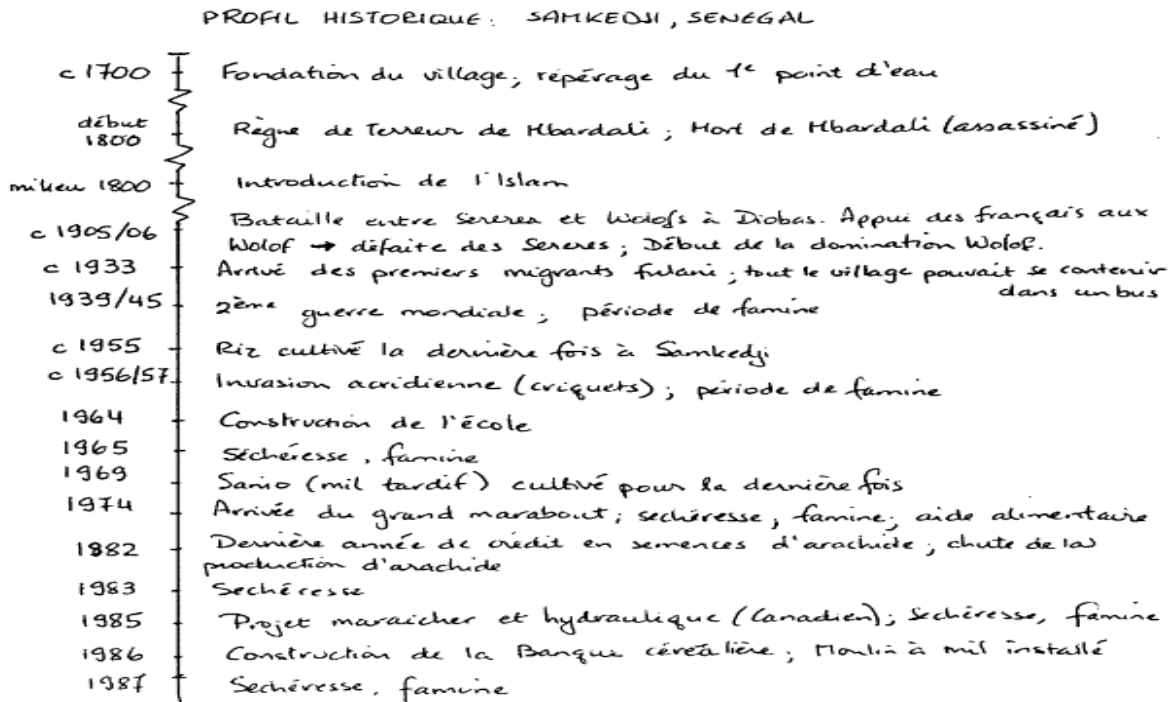 PROFIL HISTORIQUE: SAMKEDJI, SENEGAL
c 1700 Fondation du village; répérage du 1e point d'eau
début 1800 Règne de Terreur de Mbardali; Mort de Mbardali (assassiné)
milieu 1800 Introduction de l'Islam
c 1905/06 Bataille entre Sereres et Wolofs à Diobas. Appui des français aux
Wolof → défaite des Sereres; Début de la domination Wolof.
c 1933 Arrivé des premiers migrants fulani; tout le village pouvait se contenir
dans un bus
1939/45 2ème guerre mondiale; période de famine
c 1955 Riz cultivé la dernière fois à Samkedji
c 1956/57 Invasion acridienne (criquets); période de famine
1964 Construction de l'école
1965 Séchéresse, famine
1969 Sanio (mil tardif) cultivé pour la dernière fois
1974 Arrivée du grand marabout; sechéresse, famine; aide alimentaire
1982 Dernière année de crédit en semences d'arachide; chute de la
production d'arachide
1983 Sechéresse
1985 Projet maraicher et hydraulique (Canadien); sechéresse, famine
1986 Construction de la Banque céréalière; Moulin à mil installé
1987 Sechéresse, famine